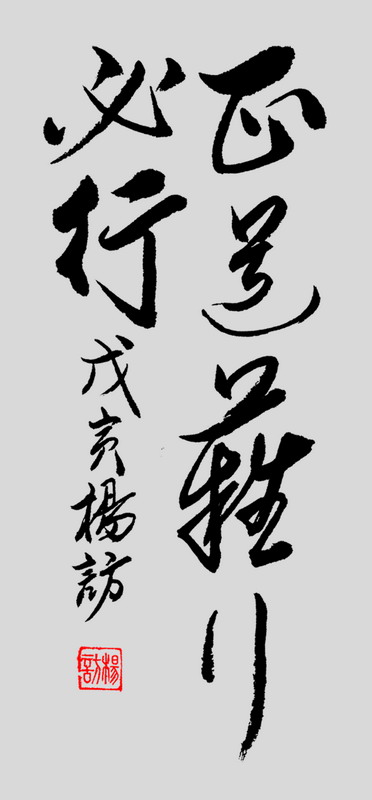 正道難行
必行
戊寅楊訪
楊訪